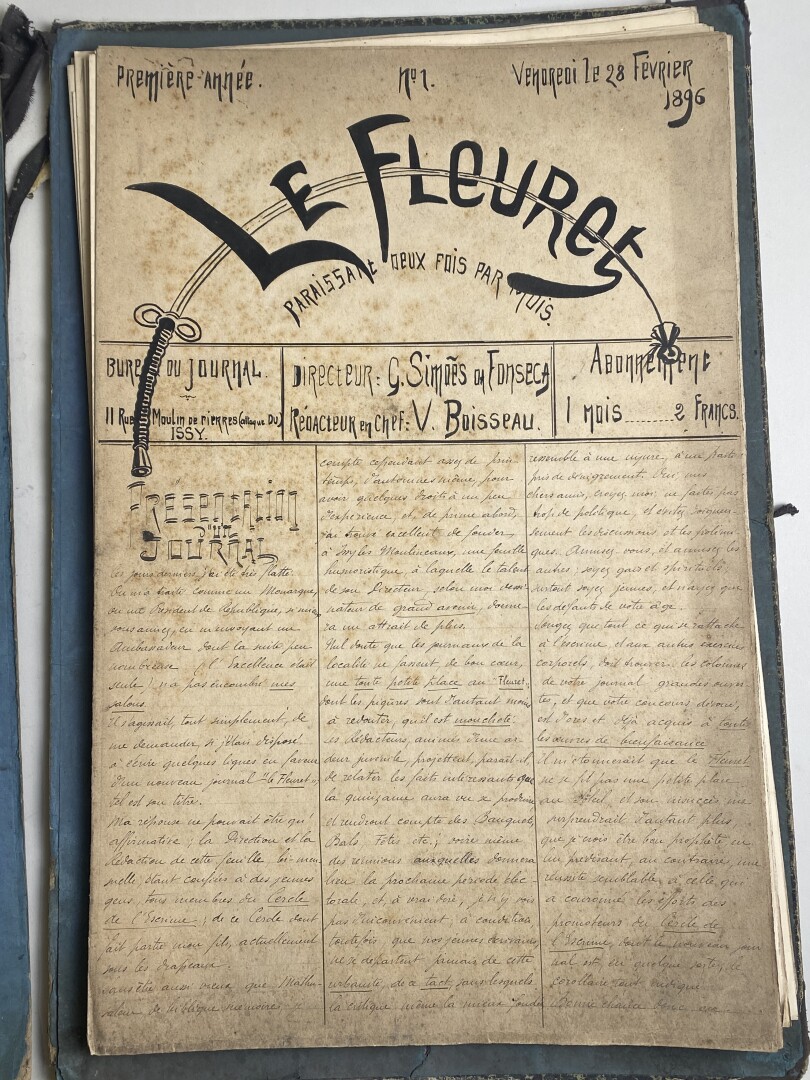 Première Année.
No 1.
Vendredi le 28 Février
1896
Le Fleuret
Paraissant deux fois par mois.
Bureau du Journal.
11 Rue Moulin de Pierres
ISSY.
Directeur: G. Simoẽs da Fonseca
Rédacteur en chef: V. Boisseau.
Abonnement
1 mois ...... 2 Francs.
Présentation
d'un
Journal
Ces jours derniers j'ai été très flatté.
On m'a traité comme un Monarque,
ou un Président de République, si mieux
vous aimez, en m'envoyant un
Ambassadeur dont la suite peu
nombreuse (l'Excellence était
seule) n'a pas encombré mes
salons.
Il s'agissait, tout simplement, de
me demander, si j'étais disposé
à écrire quelques lignes en faveur
d'un nouveau journal "le Fleuret",
tel est son titre.
Ma réponse ne pouvait être qu'
affirmative; la Direction et la
Rédaction de cette feuille bi-men
suelle étant confiées à des jeunes
gens, tous membres du Cercle
de l'Escrime; de ce Cercle dont
fait partie mon fils, actuellement
sous les drapeaux.
Sans être aussi vieux que Mathu-
salem de biblique mémoire, je
compte cependant assez de prin
temps, d'automnes même, pour
avoir quelques droits à un peu
d'expérience, et, de prime abord,
j'ai trouvé excellent de fonder
à Issy les Moulineaux, une feuille
humoristique, à laquelle le talent
de son Directeur, selon moi dessi-
nateur de grand avenir, donne
ra un attrait de plus.
Nul doute que les journaux de la
localité ne fassent de bon cœur,
une toute petite place au Fleuret,
dont les piqûres sont d'autant moins
à redouter, qu'il est moucheté.
Ses Rédacteurs, animés d'une ar
deur juvénile, projettent, paraît-il,
de relater les faits intéressants que
la quinzaine aura vu se produire
et rendront compte des Banquets,
Bals, Fêtes etc.; voire même
des réunions auxquelles donnera
lieu la prochaine période élec-
torale, et, à vrai dire, je n'y vois
pas d'inconvénient, à condition,
toutefois que nos jeunes
ne se départent jamais de cette
urbanité, de ce tact, sans lesquels
la critique même la mieux fondée
ressemble à une injure, à un parti
pris de dénigrement. Oui, mes
chers amis, croyez moi; ne faites pas
trop de politique, et évitez soigneu-
sement les discussions, et les polémi
ques. Amusez-vous, et amusez les
autres; soyez gais et spirituels;
surtout soyez jeunes, et n'ayez que
les défauts de votre âge.
Songez que tout ce qui se rattache
à l'escrime, et aux autres exercices
corporels, doit trouver les colonnes
de votre journal grandes ouver
tes, et que votre concours dévoué,
est d'ores et déjà acquis à toutes
les œuvres de bienfaisance.
Il m'étonnerait que le Fleuret
ne se fît pas une petite place
au Soleil, et son insuccès me
surprendrait d'autant plus,
que je crois être bon prophète en
lui prédisant, au contraire, une
réussite semblable à celle, qui
a couronné les efforts des
promoteurs du Cercle de
l'Escrime, dont le nouveau jour
nal est en quelque sorte, le
corollaire tout indiqué.